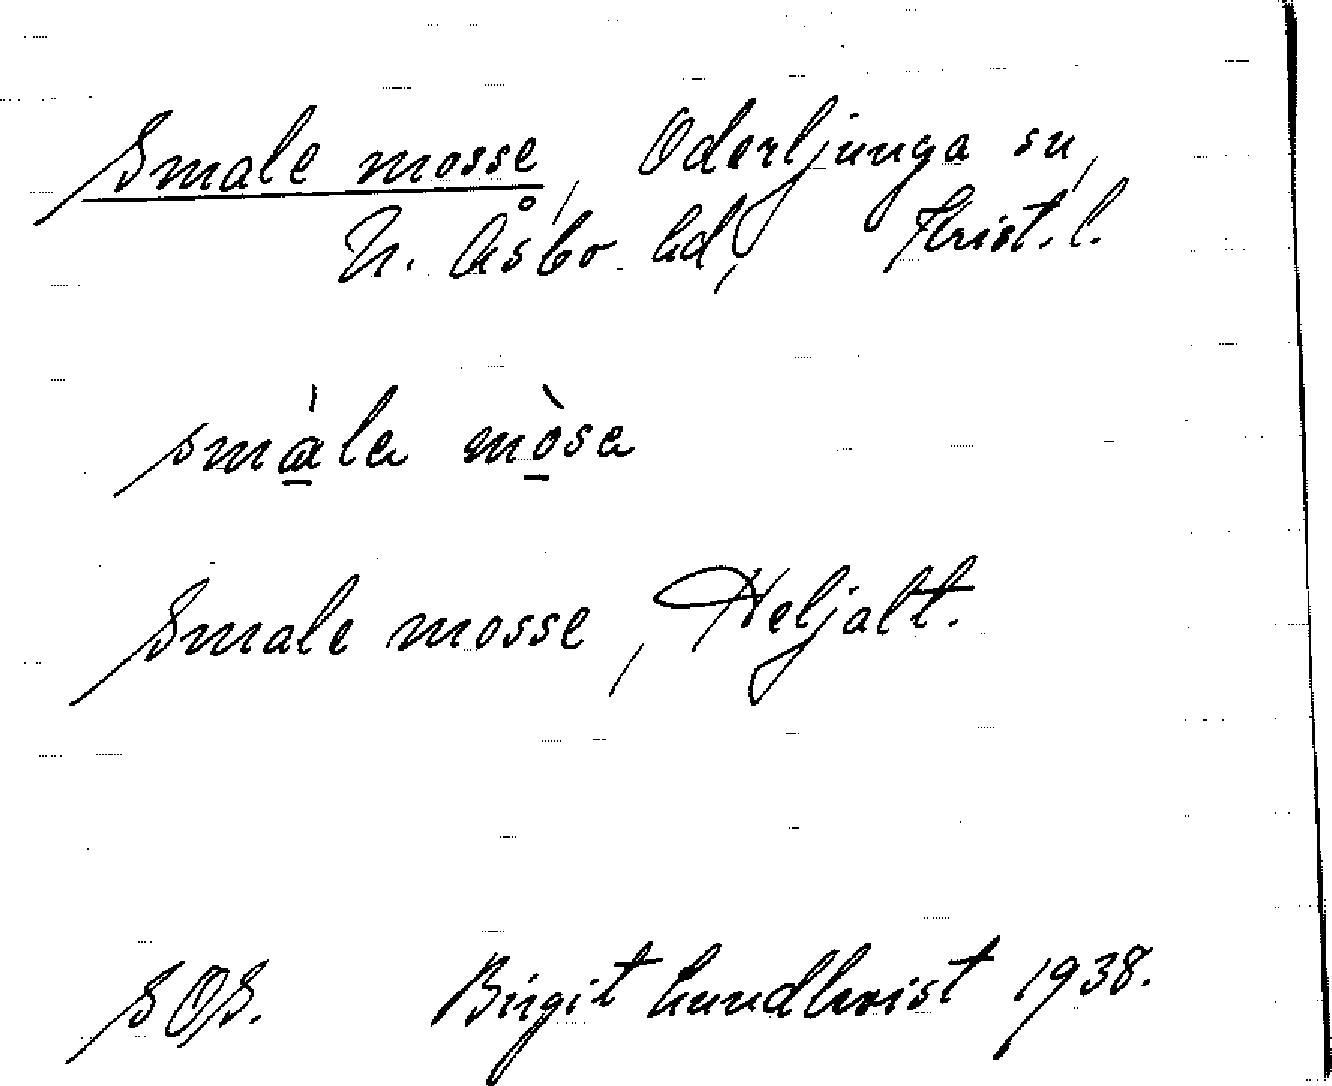 Smale mosse, Oderljunga sn,
N. Åsbo hd, Krist. l.
smàla mòsa
Smale mosse, Heljalt.
SOS. Birgit Lundkvist 1938.